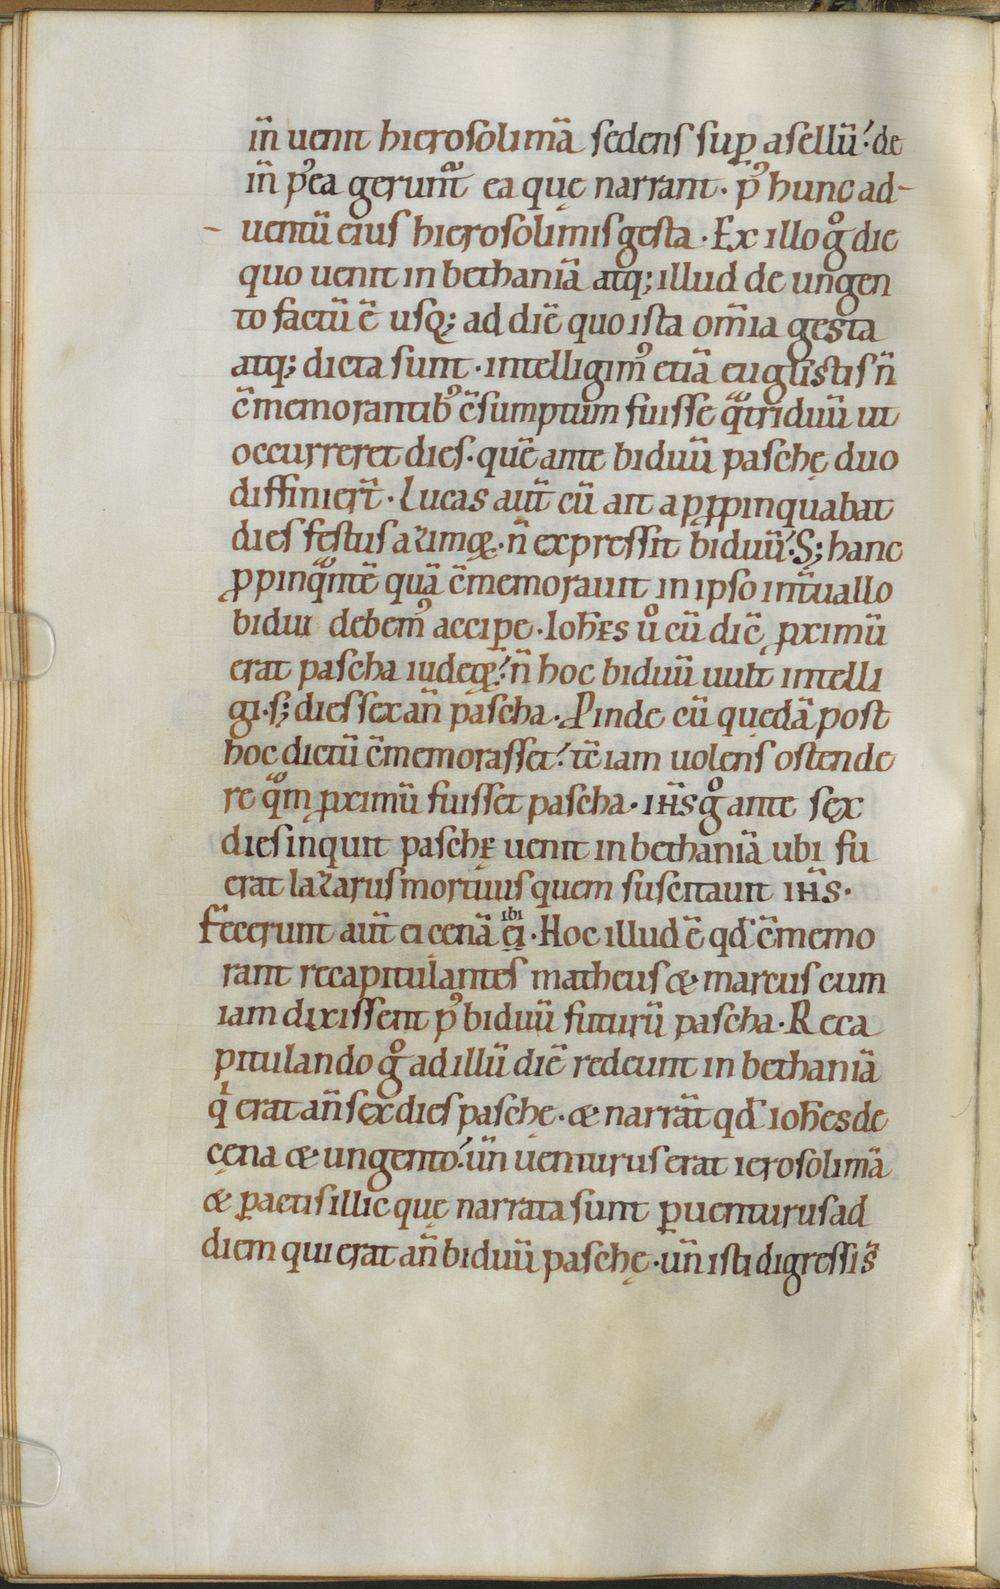 in̄ uenit hierosolimā sedens sup̲ asellū · de
in̄ pꝰea gerunt̃ ea quę narrant · pꝰ hunc ad-
- uentū eius hierosolimis gesta · Ex illo gͦ die
quo uenit in bethaniā atq; illud de ungen
to factū ē usq; ad diē quo ista om̄ia gesta
atq; dicta sunt · intelligimꝰ etiā euḡlistis n̄
c̄memorantibꝰ c̄sumptum fuisse qͦtriduū ut
occurreret dies · quē ante biduū paschę duo
diffinier̄t · Lucas aūt cū ait appꝓinquabat
dies festus azimoꝝ · n̄ expressit biduū · S; hanc
ꝓpinqͦntē quā c̄memorauit in ipso int̄uallo
bidui debemꝰ accipe · Ioh̄es uͦ cū dic̄ ꝓximū
erat pascha iudeoꝝ · n̄ hoc biduū uult intelli
gi · s; dies sex an̄ pascha · Pinde cū quedā post
hoc dictū c̄memorasset · tc̄ iam uolens ostende
re qͦm ꝓximū fuisset pascha · ih̄s gͦ ante sex
dies inquit paschę uenit in bethaniā ubi fu
erat lazarus mortuus quem suscitauit ih̄s ·
Fecerunt aūt ei cenā ibi ei · Hoc illud ē qd̄ c̄memo
rant recapitulantes matheus & marcus cum
iam dixissent pꝰ biduū futurū pascha · Reca
pitulando gͦ ad illū diē redeunt in bethaniā
qi erat an̄ sex dies paschę · & narrāt qd̄ ioh̄es de
cęna & ungento · un̄ uenturus erat ierosolimā
& ꝑactis illic quę narrata sunt ꝑuenturus ad
diem qui erat an̄ biduū paschę · un̄ isti digressi s̄